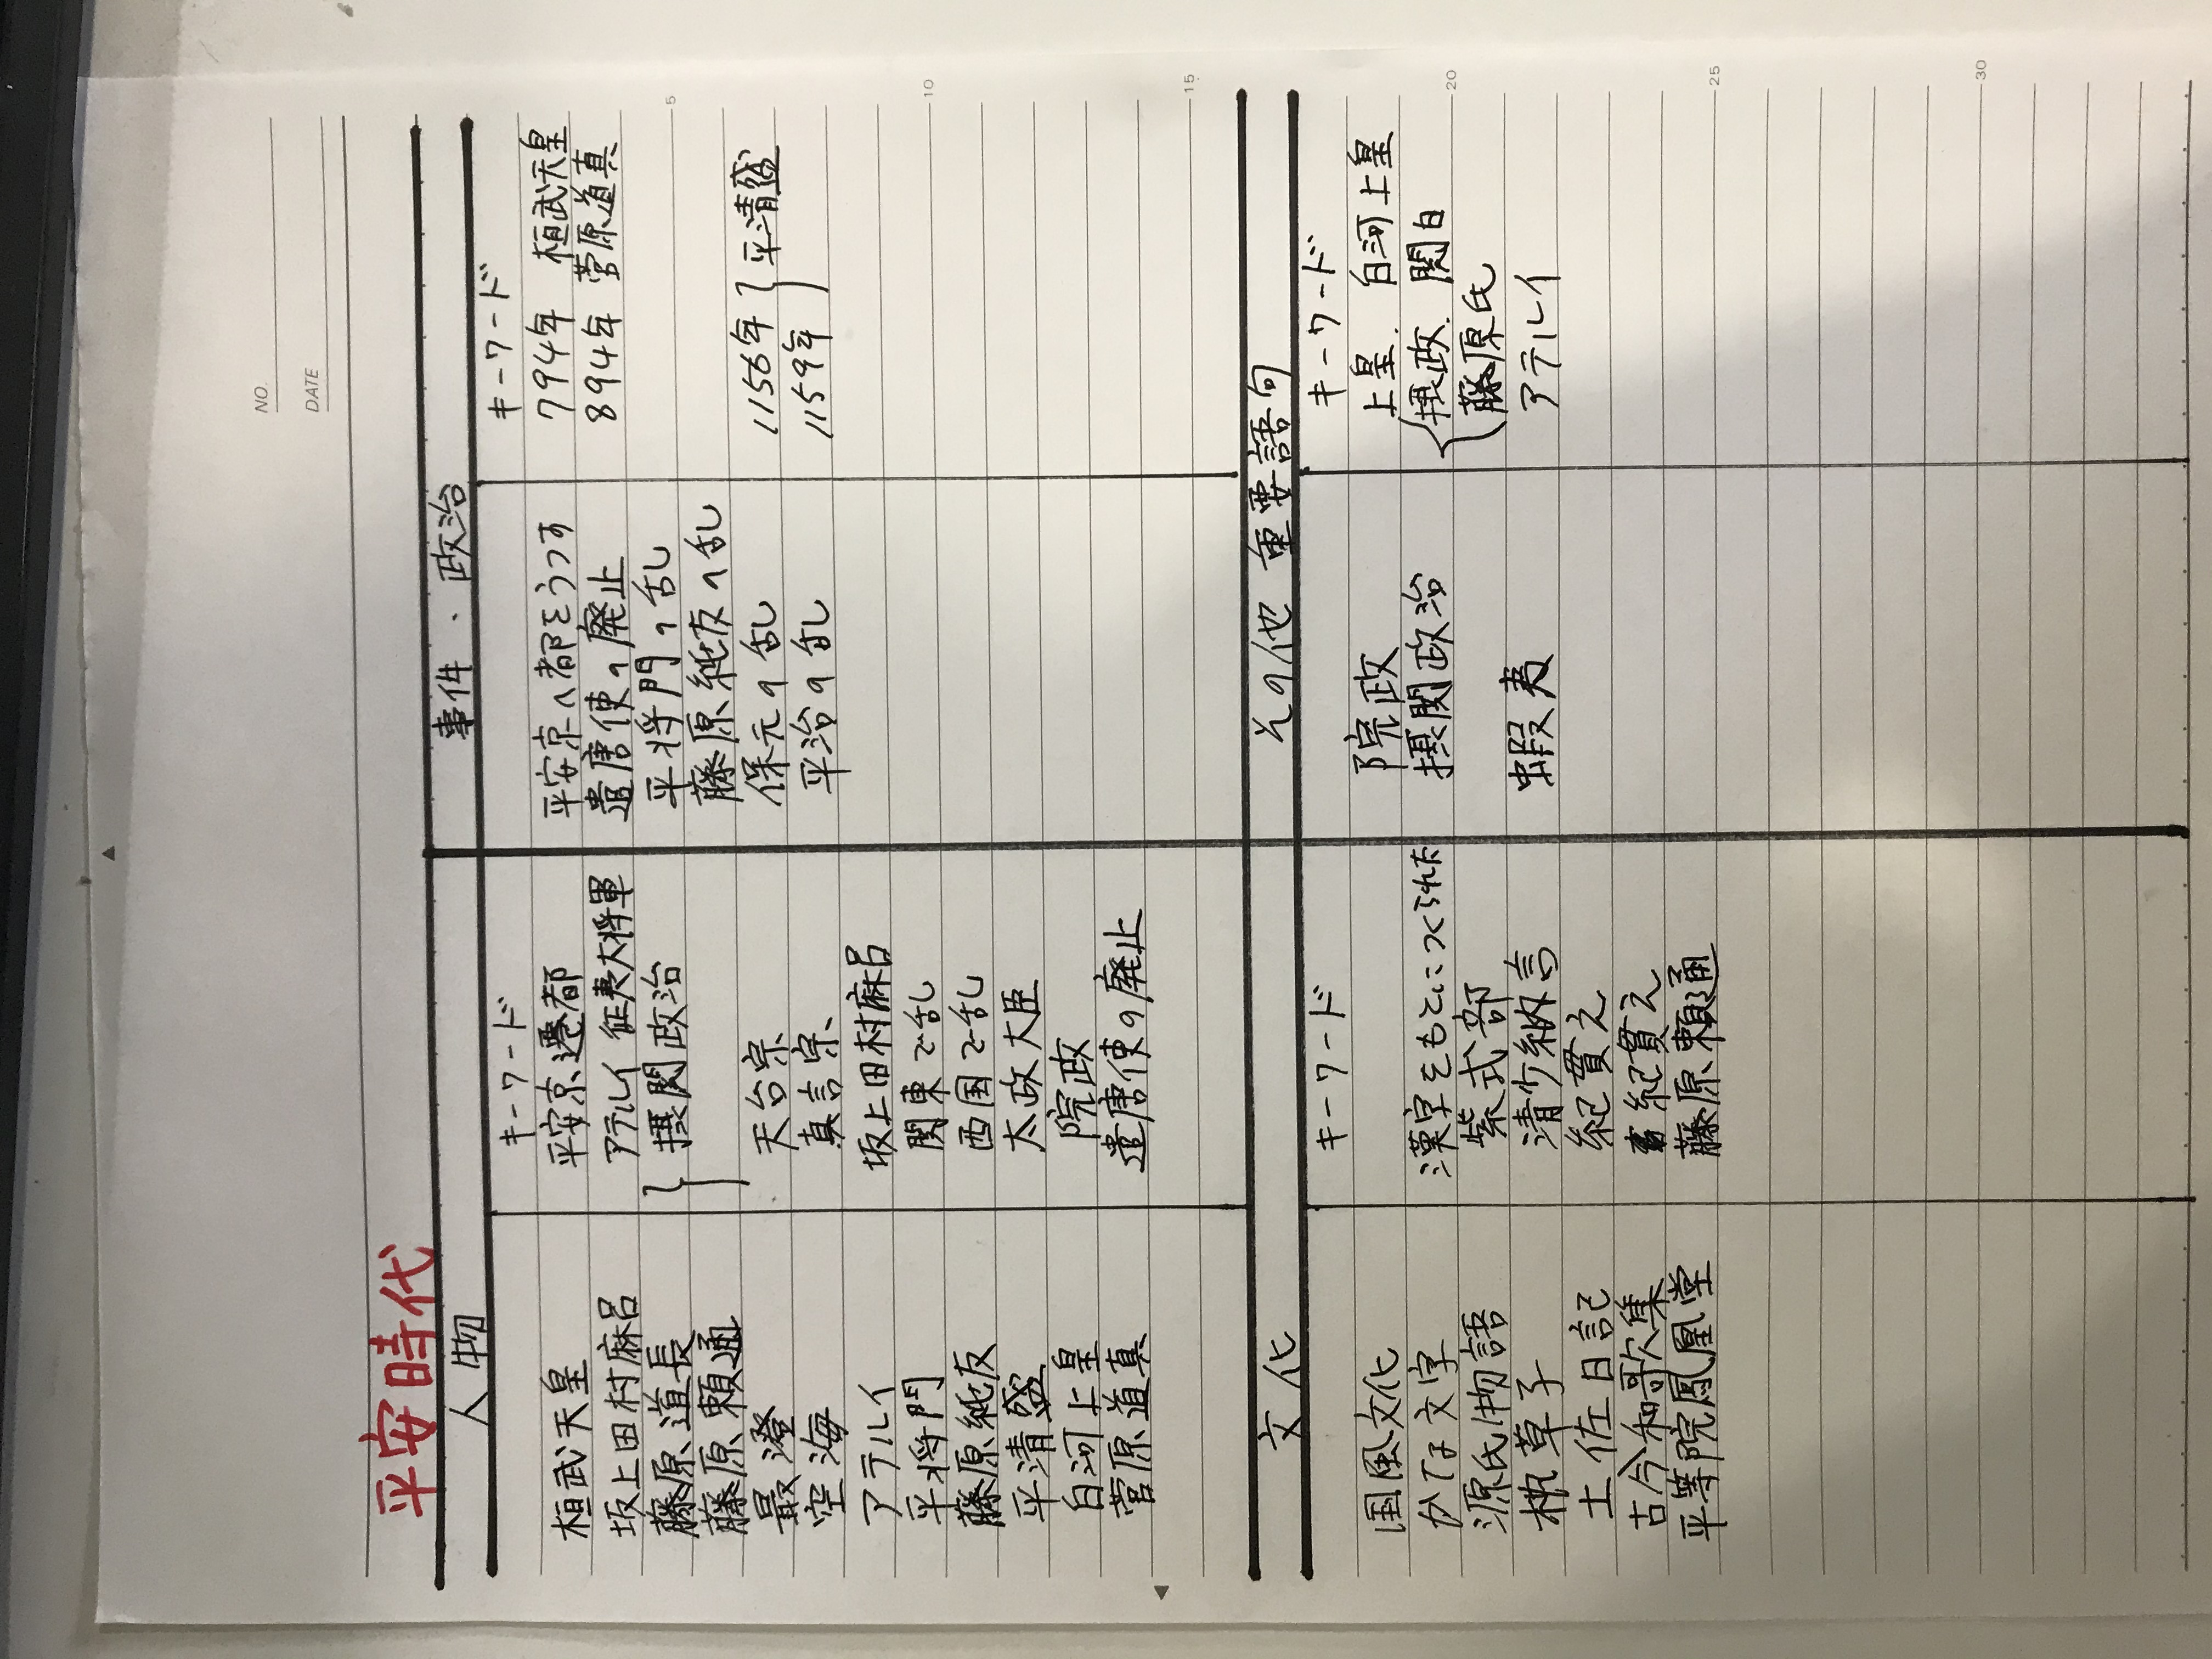 NO.
DATE
平安時代
人物
キーワード
桓武天皇 平安京遷都
坂上田村麻呂 アテルイ 征夷大将軍
藤原道長 } 摂関政治
藤原頼通
最澄 天台宗
空海 真言宗
アテルイ 坂上田村麻呂
平将門 関東で乱
藤原純友 西国で乱
平清盛 太政大臣
白河上皇 院政
菅原道真 遣唐使の廃止
事件・政治
キーワード
平安京へ都をうつす 794年 桓武天皇
遣唐使の廃止 894年 菅原道真
平将門の乱
藤原純友の乱
保元の乱 1156年 } 平清盛
平治の乱 1159年
5
10
15
文化
キーワード
国風文化
かな文字 漢字をもとにつくられた
源氏物語 紫式部
枕草子 清少納言
土佐日記 紀貫え
古今和歌集 紀貫え
平等院鳳凰堂 藤原頼通
その他 重要語句
キーワード
院政 上皇. 白河上皇
摂関政治 { 摂政. 関白
藤原氏
蝦夷 アテルイ
20
25
30